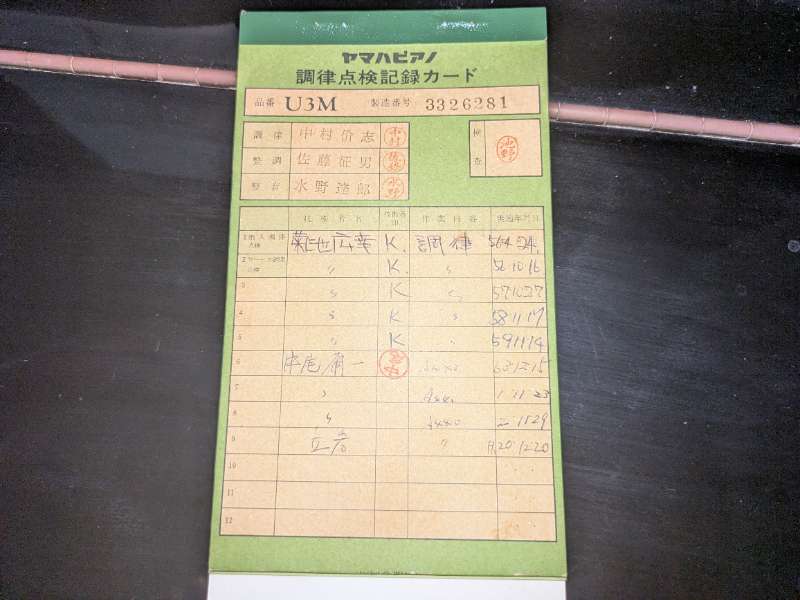 ヤマハピアノ
調律点検記録カード
品番 U3M 製造番号 3326281
調律 中村
整調 佐藤征男
整音 水野達郎
検査
技術者名 作業内容 実施年月日
1 菊池広幸 K. 調律 56.4.24.
2 〃 K. 〃 56 10 16
3 〃 K 〃 57 10 27
4 〃 K 〃 58 11 17
5 〃 K 〃 59 11 14
6 63 12 15
7 〃 A440 1 11 23
8 〃 A440 二 11 29
9 〃 H.20 12 20
10
11
12